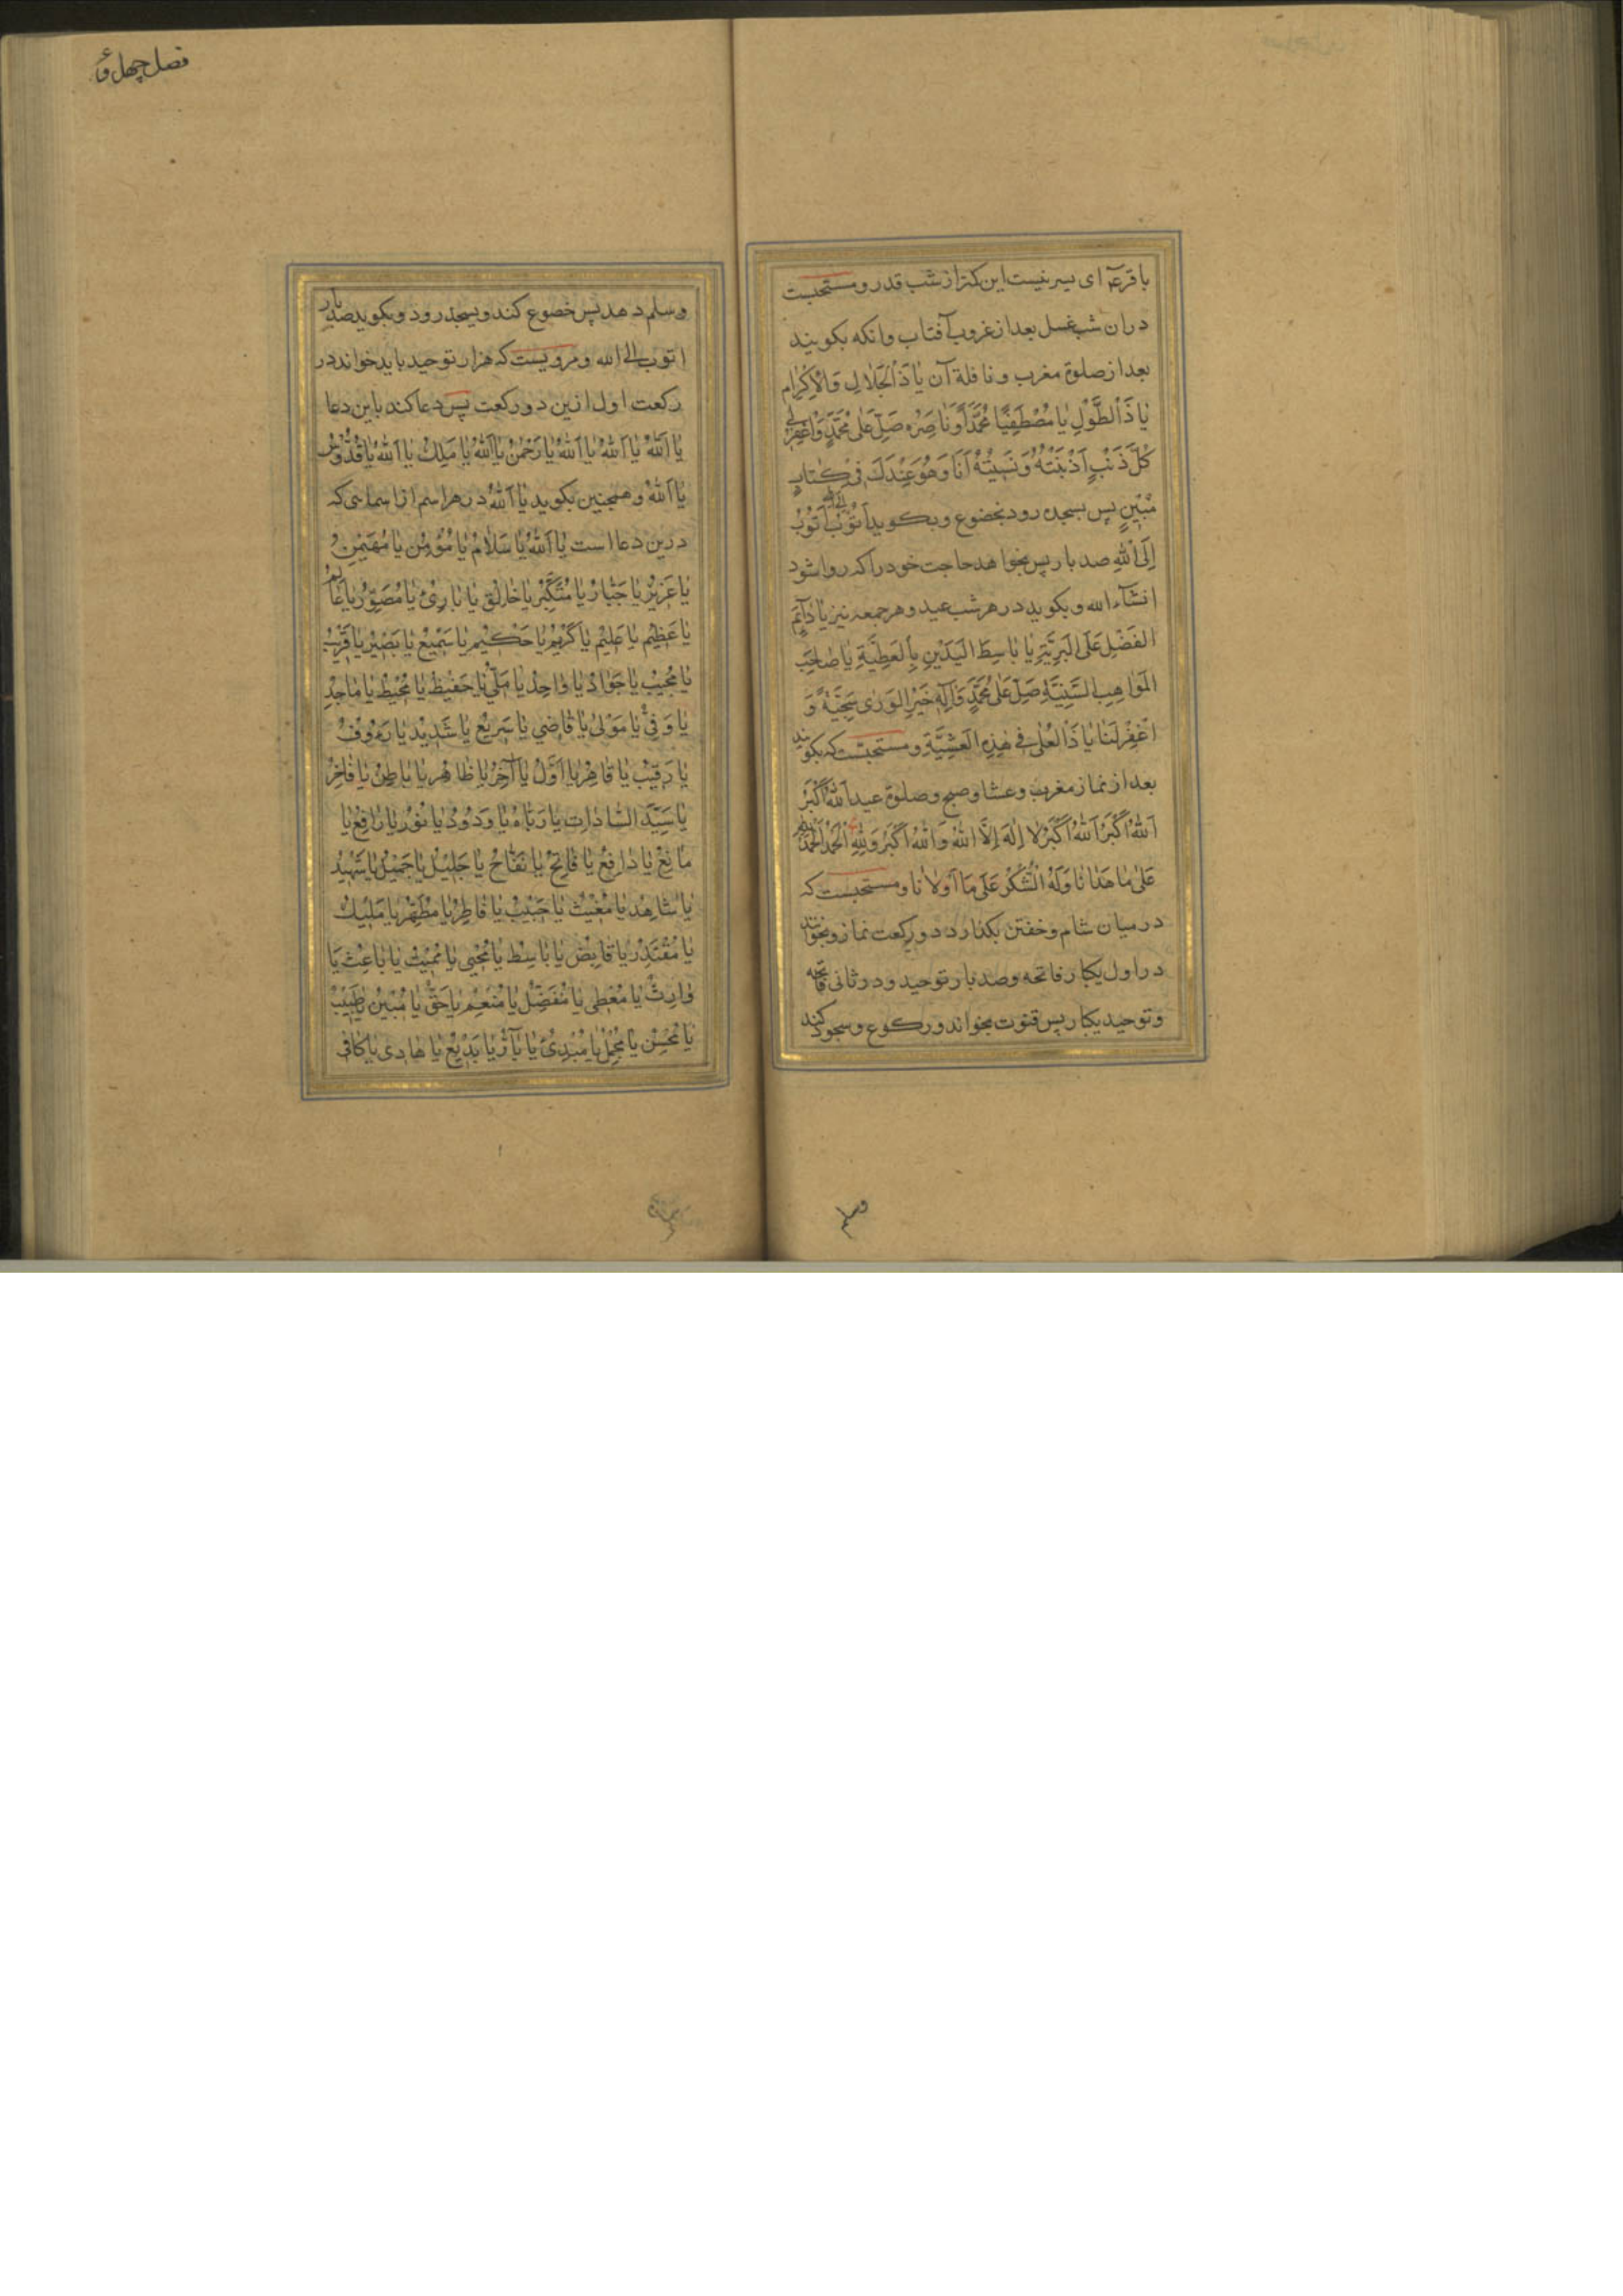 باقر ع ای پسر نیست این کمتر از شب قدر و مستحبست
در ان شب غسل بعد از غروب آفتاب وانکه بکویند
بعد از صلوة مغرب و نافلهٔ آن يٰا ذَا الْجَلالِ وَالْاِكْرٰامِ
يٰا ذَا الطَّوْلِ يٰا مُصْطَفِيًا مُحَمَّدًا وَنٰاصِرَهُ صَلِّ عَلٰى مُحَمَّدٍ وَاغْفِرْ لِي
كُلَّ ذَنْبٍ اَذْنَبْتُهُ وَنَسِيْتُهُ اَنَا وَهُوَ عِنْدَكَ فِيْ كِتٰابٍ
مُبِيْنٍ پس بسجده رود بخضوع و بکوید اَتُوْبُ اِلَى اللهِ اَتُوْبُ
اِلَى اللهِ صد بار پس بخواهد حاجت خود را که روا شود
انشآء الله و بکوید در هر شب عید و هر جمعه نیز يٰا دٰآئِمَ
الْفَضْلِ عَلَى الْبَرِيَّةِ يٰا بٰاسِطَ الْيَدَيْنِ بِالْعَطِيَّةِ يٰا صٰاحِبَ
الْمَوٰاهِبِ السَّنِيَّةِ صَلِّ عَلٰى مُحَمَّدٍ وَاٰلِهِ خَيْرِ الْوَرٰى سَجِيَّةً وَ
اغْفِرْ لَنٰا يٰا ذَا الْعُلٰى فِي هٰذِهِ الْعَشِيَّةِ و مستحبست که بکویند
بعد از نماز مغرب و عشا و صبح و صلوة عید اَللهُ اَكْبَرُ
اَللهُ اَكْبَرُ اَللهُ اَكْبَرُ لا اِلٰهَ اِلَّا اللهُ وَاللهُ اَكْبَرُ وَلِلّٰهِ الْحَمْدُ اَلْحَمْدُ لِلّٰهِ
عَلٰى مٰا هَدٰانٰا وَلَهُ الشُّكْرُ عَلٰى مٰا اَوْلانٰا و مستحبست که
در میان شام و خفتن بکذارد دو رکعت نماز و بخواند
در اول یکبار فاتحه و صد بار توحید و در ثانی فاتحه
و توحید یکبار پس قنوت بخواند و رکوع و سجود کند
وسلم
فصل چهل و
و سلام دهد پس خضوع کند و بسجده رود و بکوید صد بار
اتوب الی الله و مرویست که هزار توحید باید خواند در
رکعت اول ازین دو رکعت پس دعا کند باین دعا
يٰا اَللهُ يٰا اَللهُ يٰا اَللهُ يٰا رَحْمٰنُ يٰا اَللهُ يٰا مَلِكُ يٰا اَللهُ يٰا قُدُّوْسُ
يٰا اَللهُ و همچنین بکوید يٰا اَللهُ در هر اسم از اسمائی که
درین دعا است يٰا اَللهُ يٰا سَلامُ يٰا مُؤْمِنُ يٰا مُهَيْمِنُ
يٰا عَزِيْزُ يٰا جَبّٰارُ يٰا مُتَكَبِّرُ يٰا خٰالِقُ يٰا بٰارِئُ يٰا مُصَوِّرُ يٰا عٰالِمُ
يٰا عَظِيْمُ يٰا عَلِيْمُ يٰا كَرِيْمُ يٰا حَكِيْمُ يٰا سَمِيْعُ يٰا بَصِيْرُ يٰا قَرِيْبُ
يٰا مُجِيْبُ يٰا جَوٰادُ يٰا وٰاحِدُ يٰا مَلِيُّ يٰا حَفِيْظُ يٰا مُحِيْطُ يٰا مٰاجِدُ
يٰا وَفِيُّ يٰا مَوْلٰى يٰا قٰاضِي يٰا سَرِيْعُ يٰا شَدِيْدُ يٰا رَءُوْفُ
يٰا رَقِيْبُ يٰا قٰاهِرُ يٰا اَوَّلُ يٰا آخِرُ يٰا ظٰاهِرُ يٰا بٰاطِنُ يٰا فٰاخِرُ
يٰا سَيِّدَ السّٰادٰاتِ يٰا رَبّٰاهُ يٰا وَدُوْدُ يٰا نُوْرُ يٰا رٰافِعُ يٰا
مٰانِعُ يٰا دٰافِعُ يٰا فٰاتِحُ يٰا نَفّٰاحُ يٰا جَلِيْلُ يٰا جَمِيْلُ يٰا شَهِيْدُ
يٰا شٰاهِدُ يٰا مُغِيْثُ يٰا حَبِيْبُ يٰا فٰاطِرُ يٰا مُطَهِّرُ يٰا مَلِيْكُ
يٰا مُقْتَدِرُ يٰا قٰابِضُ يٰا بٰاسِطُ يٰا مُحْيِي يٰا مُمِيْتُ يٰا بٰاعِثُ يٰا
وٰارِثُ يٰا مُعْطِي يٰا مُفَضِّلُ يٰا مُنْعِمُ يٰا حَقُّ يٰا مُبِيْنُ يٰا طَبِيْبُ
يٰا مُحْسِنُ يٰا مُجْمِلُ يٰا مُبْدِئُ يٰا بٰآرُّ يٰا بَدِيْعُ يٰا هٰادِي يٰا كٰافِي